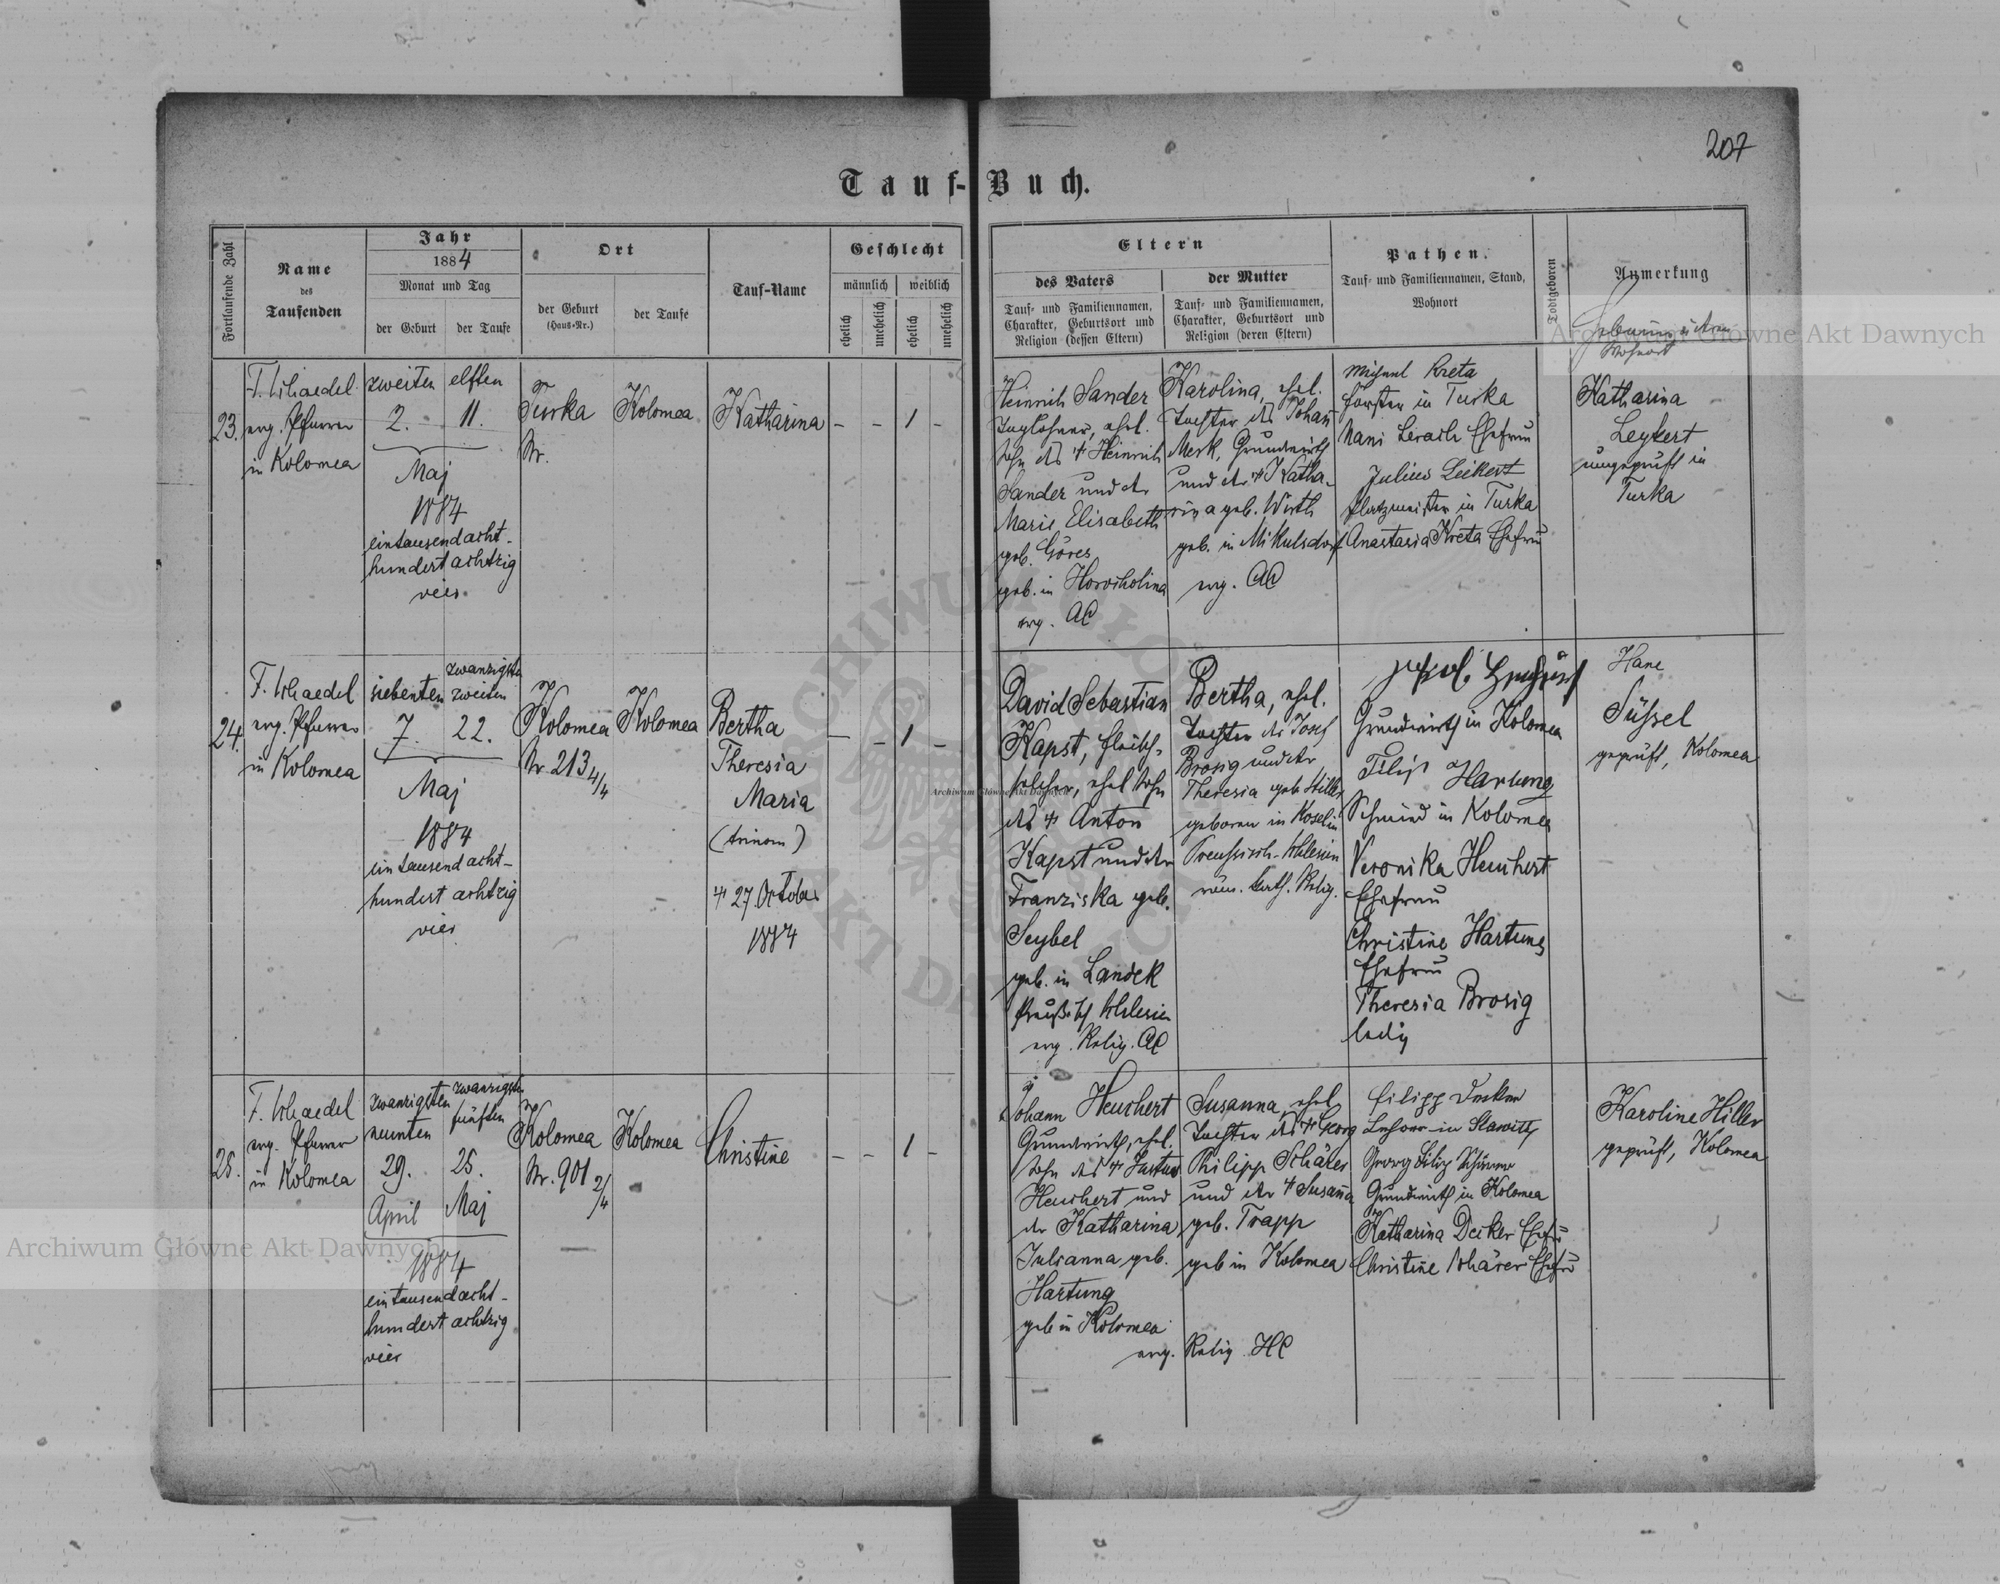 207
Tauf-Buch.
Fortlaufende Zahl
Name
des
Taufenden
Jahr
1884
Monat und Tag
der Geburt
der Taufe
Ort
der Geburt
(Haus-Nr.)
der Taufe
Tauf-Name
Geschlecht
männlich
weiblich
ehelich
unehelich
ehelich
unehelich
Eltern
des Vaters
Tauf- und Familiennamen,
Charakter, Geburtsort und
Religion (dessen Eltern)
der Mutter
Tauf- und Familiennamen,
Charakter, Geburtsort und
Religion (deren Eltern)
Pathen.
Tauf- und Familiennamen, Stand,
Wohnort
Todtgeboren
Anmerkung
Wohnort
23.
evg. Pfarrer
in Kolomea
zweiten
2.
elften
11.
Maj
1884
eintausendacht-
hundert achtzig
vier
Turka
Nr.
Kolomea
Katharina
- - 1 -
Heinrich Sander
Taglöhner, ehel.
Sohn des † Heinrich
Sander und der
Marie Elisabeth
geb. Göres
geb. in Horocholina
evg. AC
Karolina, ehel.
Tochter des Johan̄
Merk, Grundwirth
und der † Katha-
rina geb. Wirth
geb. in Mikulsdorf
evg. AC
Michael Kreta
Förster in Turka
Ehefrau
Julius Leikert
Platzmeister in Turka
Anastasia Kreta Ehefrau
Katharina
Leykert
ungeprüft in
Turka
24.
evg. Pfarrer
in Kolomea
siebenten
7.
zwanzigsten
zweiten
22.
Maj
1884
eintausendacht-
hundert achtzig
vier
Kolomea
Nr 213 4/4
Kolomea
Bertha
Theresia
Maria
(trinom)
† 27 October
1884
- - 1 -
David Sebastian
Kapst, Fleisch-
selcher, ehel Sohn
des † Anton
Kapst und der
Franziska geb.
Seybel
geb. in Landek
Preußisch Schlesien
evg. Relig. AC
Bertha, ehel.
Tochter des Josef
Brosig und der
Theresia geb Hiller
geboren in Koselin
Preussisch-Schlesien
röm. kath. Relig.
Grundwirth in Kolomea
Filip Hartung
Schmied in Kolomea
Veronika Heuchert
Ehefrau
Christine Hartung
Ehefrau
Theresia Brosig
ledig
Hane
Süssel
geprüft, Kolomea
25.
evg. Pfarrer
in Kolomea
zwanzigsten
neunten
29.
April
zwanzigsten
fünften
25.
Maj
1884
eintausendacht-
hundert achtzig
vier
Kolomea
Nr. 901 2/4
Kolomea
Christine
- - 1 -
Johann Heuchert
Grundwirth, ehel.
Sohn des † Justus
Heuchert und
der Katharina
Julianna geb.
Hartung
geb in Kolomea
evg. Relig. HC
Susanna, ehel
Tochter des † Georg
Philipp Schärer
und der † Susan̄a
geb. Trapp
geb in Kolomea
Filipp Decker
Lehrer in
Georg Filip Schärer
Grundwirth in Kolomea
Katharina Decker Ehefr
Christine Schärer Ehefr
Karoline Hiller
geprüft, Kolomea
Archiwum Główne Akt Dawnych
Archiwum Główne Akt Dawnych
Archiwum Główne Akt Dawnych